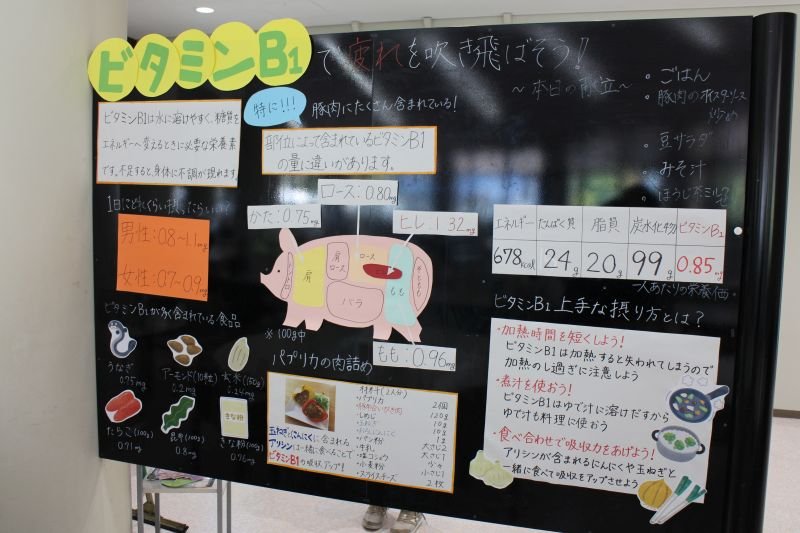 ビタミンB1で疲れを吹き飛ばそう!
~本日の献立~
・ごはん
・豚肉のオイスターソース炒め
・豆サラダ
・みそ汁
・ほうじ茶ミルク
ビタミンB1は水に溶けやすく、糖質を
エネルギーへ変えるときに必要な栄養素
です。不足すると、身体に不調が現れます。
特に!!!
豚肉にたくさん含まれている!
部位によって含まれているビタミンB1
の量に違いがあります。
1日にどれくらい摂ったらいい?
男性:0.8~1.1mg
女性:0.7~0.9mg
ロース:0.80mg
かた:0.75mg
ヒレ:1.32mg
肩
肩ロース
ロース
バラ
もも
もも:0.96mg
※100g中
エネルギー たんぱく質 脂質 炭水化物 ビタミンB1
678kcal 24g 20g 99g 0.85mg
一人あたりの栄養価
ビタミンB1が多く含まれている食品
うなぎ
0.75mg
アーモンド(10粒)
0.2mg
玄米(150g)
0.24mg
たらこ(100g)
0.71mg
昆布(100g)
0.8mg
きな粉
きな粉(100g)
0.76mg
パプリカの肉詰め
玉ねぎ、にんにくに含まれる
アリシンは一緒に食べることで
ビタミンB1の吸収アップ!
材料(2人分)
・パプリカ 2個
・豚肉合いびき肉 120g
・しめじ 10g
・玉ねぎ
・おろしにんにく
・パン粉
・牛乳 大さじ2
・塩コショウ 少々
・小麦粉 小さじ1
・スライスチーズ 2枚
ビタミンB1 上手な摂り方とは?
・加熱時間を短くしよう!
ビタミンB1は加熱すると失われてしまうので
加熱のし過ぎに注意しよう
・煮汁を使おう!
ビタミンB1はゆで汁に溶けだすから
ゆで汁も料理に使おう
・食べ合わせで吸収力をあげよう!
アリシンが含まれるにんにくや玉ねぎと
一緒に食べて吸収をアップさせよう